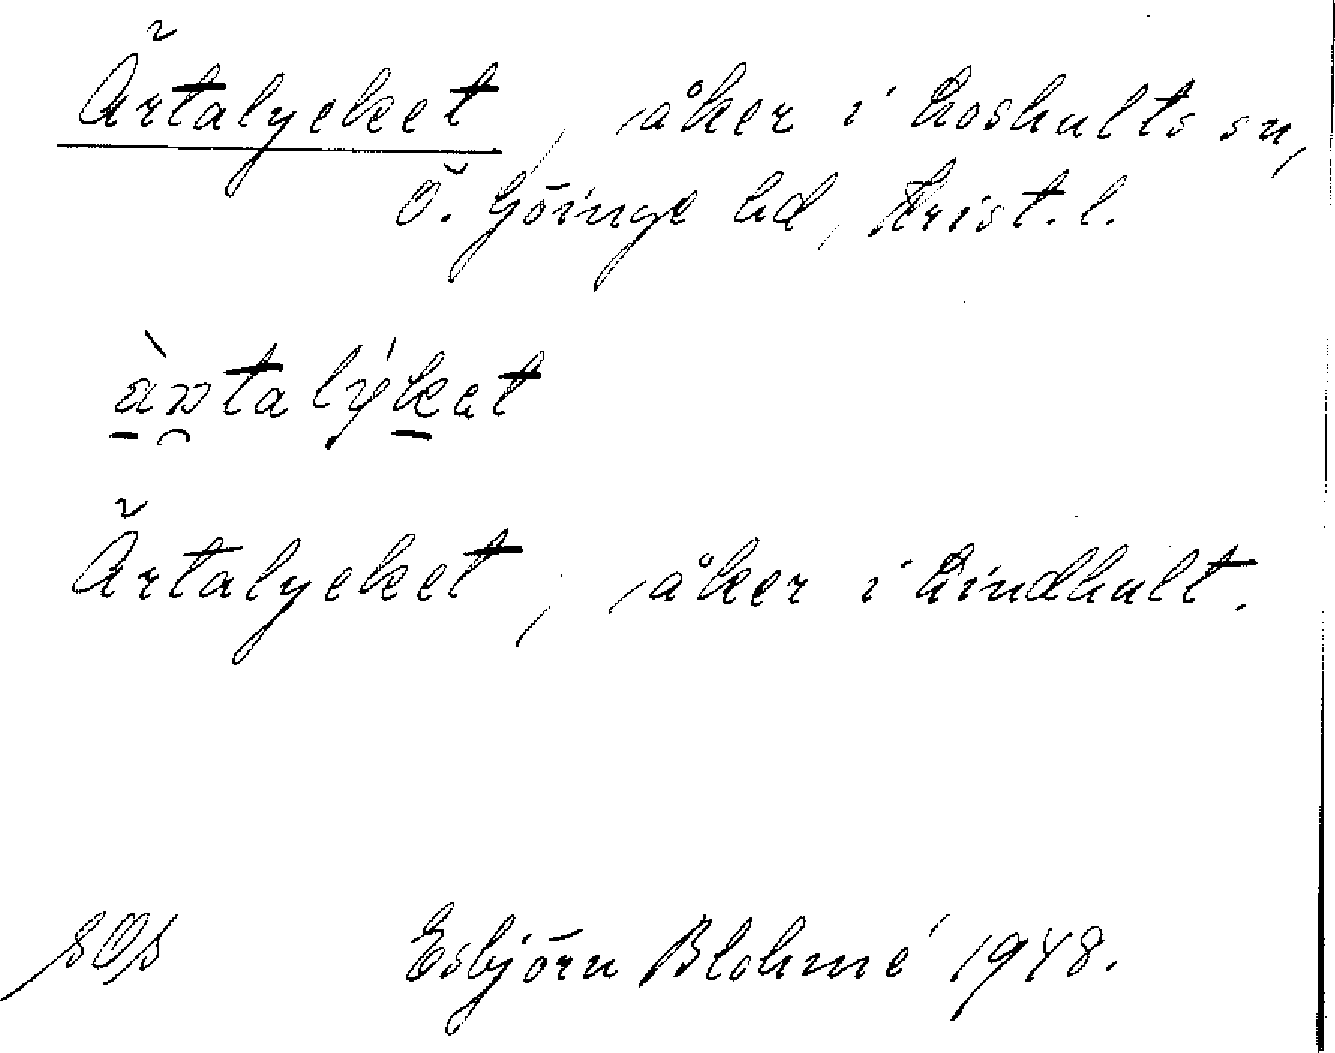 Ärtalycket, åker i Loshults sn,
Ö. Göinge hd, Krist. l.
Ärtalycket, åker i Lindhult.
Esbjörn Blohmé 1948.